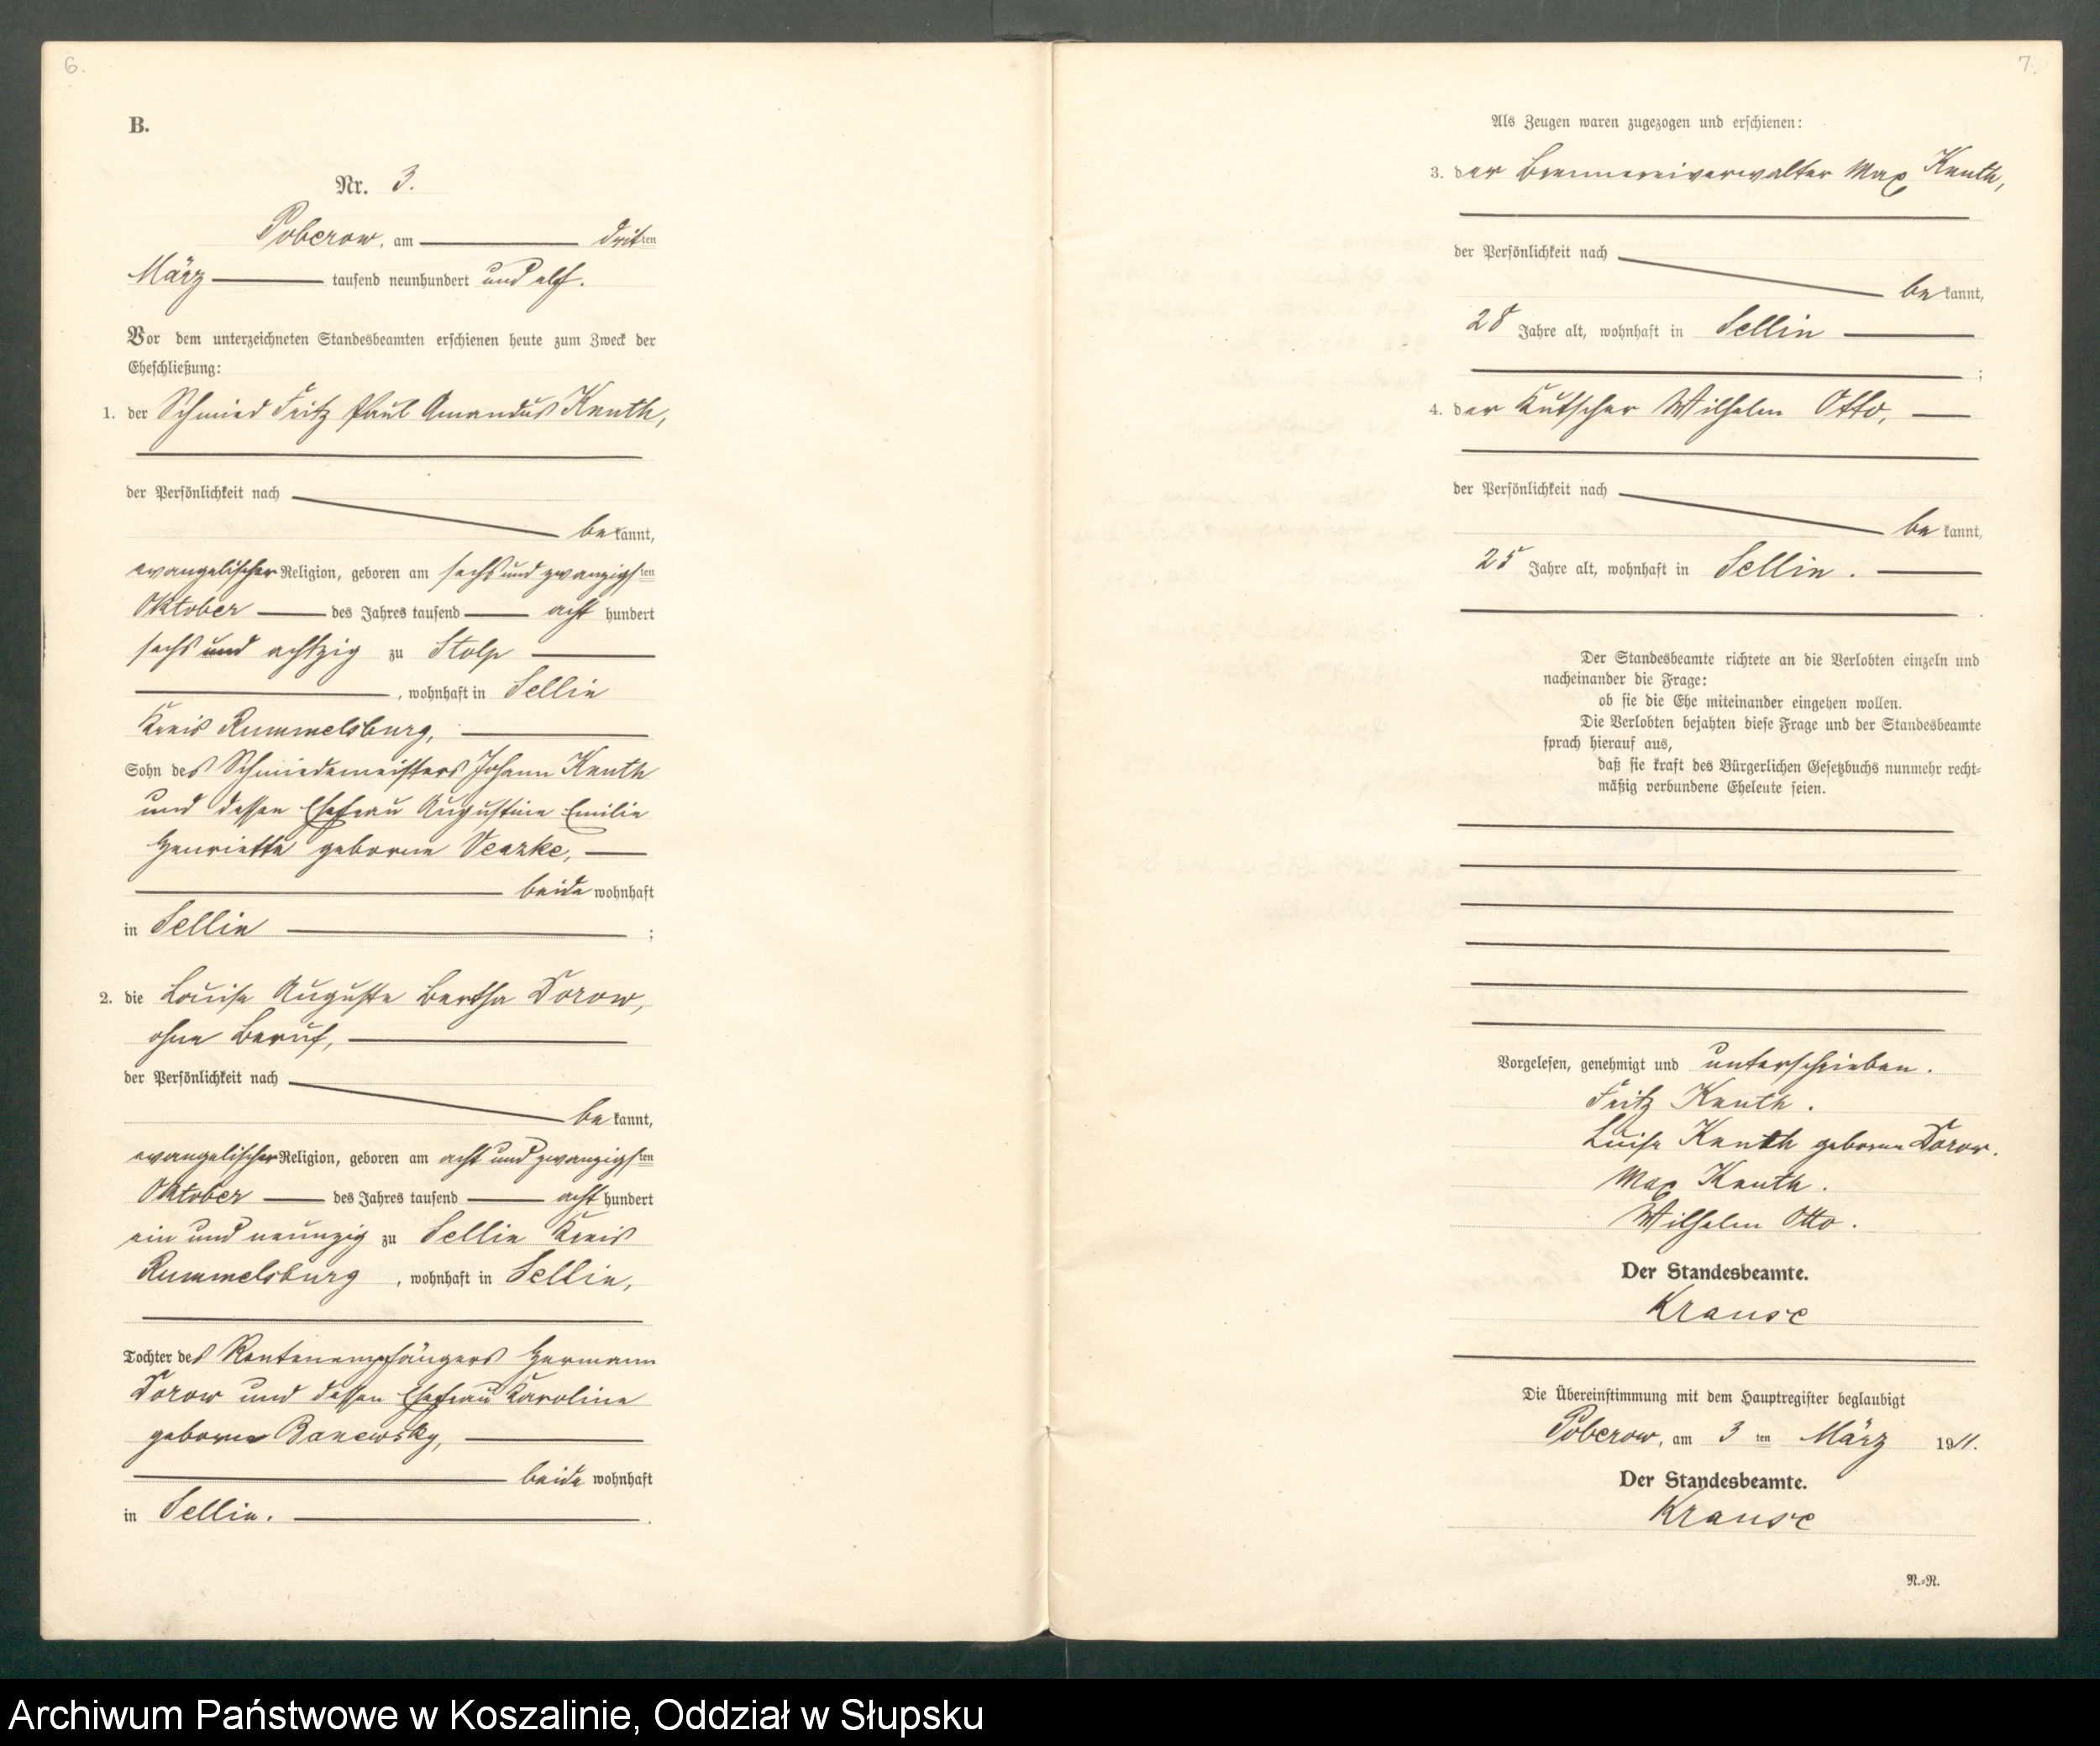 6.
B.
Nr. 3.
Poberow, am dritten
März tausend neunhundert und elf.
Vor dem unterzeichneten Standesbeamten erschienen heute zum Zweck der
Eheschließung:
1. der Schmied Fritz Paul Amandus Knuth,
der Persönlichkeit nach
bekannt,
evangelischer Religion, geboren am sechs und zwanzigsten
Oktober des Jahres tausend acht hundert
sechs und achtzig zu Stolp
, wohnhaft in Sellin
Kreis Rummelsburg,
Sohn des Schmiedemeisters Johann Knuth
und dessen Ehefrau Augustine Emilie
Henriette geborne
beide wohnhaft
in Sellin ;
2. die Louise Auguste Bertha Dorow,
ohne Beruf,
der Persönlichkeit nach
bekannt,
evangelischer Religion, geboren am acht und zwanzigsten
Oktober des Jahres tausend acht hundert
ein und neunzig zu Sellin Kreis
Rummelsburg , wohnhaft in Sellin,
Tochter des Rentenempfängers Hermann
Dorow und dessen Ehefrau Karoline
geborne Banewsky,
beide wohnhaft
in Sellin.
7.
Als Zeugen waren zugezogen und erschienen:
3. der Brennereiverwalter Max Knuth,
der Persönlichkeit nach
bekannt,
28 Jahre alt, wohnhaft in Sellin
;
4. der Kutscher Wilhelm Otto,
der Persönlichkeit nach
bekannt,
25 Jahre alt, wohnhaft in Sellin.
Der Standesbeamte richtete an die Verlobten einzeln und
nacheinander die Frage:
ob sie die Ehe miteinander eingehen wollen.
Die Verlobten bejahten diese Frage und der Standesbeamte
sprach hierauf aus,
daß sie kraft des Bürgerlichen Gesetzbuchs nunmehr recht-
mäßig verbundene Eheleute seien.
Vorgelesen, genehmigt und unterschrieben.
Fritz Knuth.
Luise Knuth geborne Dorow.
Max Knuth.
Wilhelm Otto.
Der Standesbeamte.
Krause
Die Übereinstimmung mit dem Hauptregister beglaubigt
Poberow, am 3ten März 1911.
Der Standesbeamte.
Krause
N.-R.
Archiwum Państwowe w Koszalinie, Oddział w Słupsku